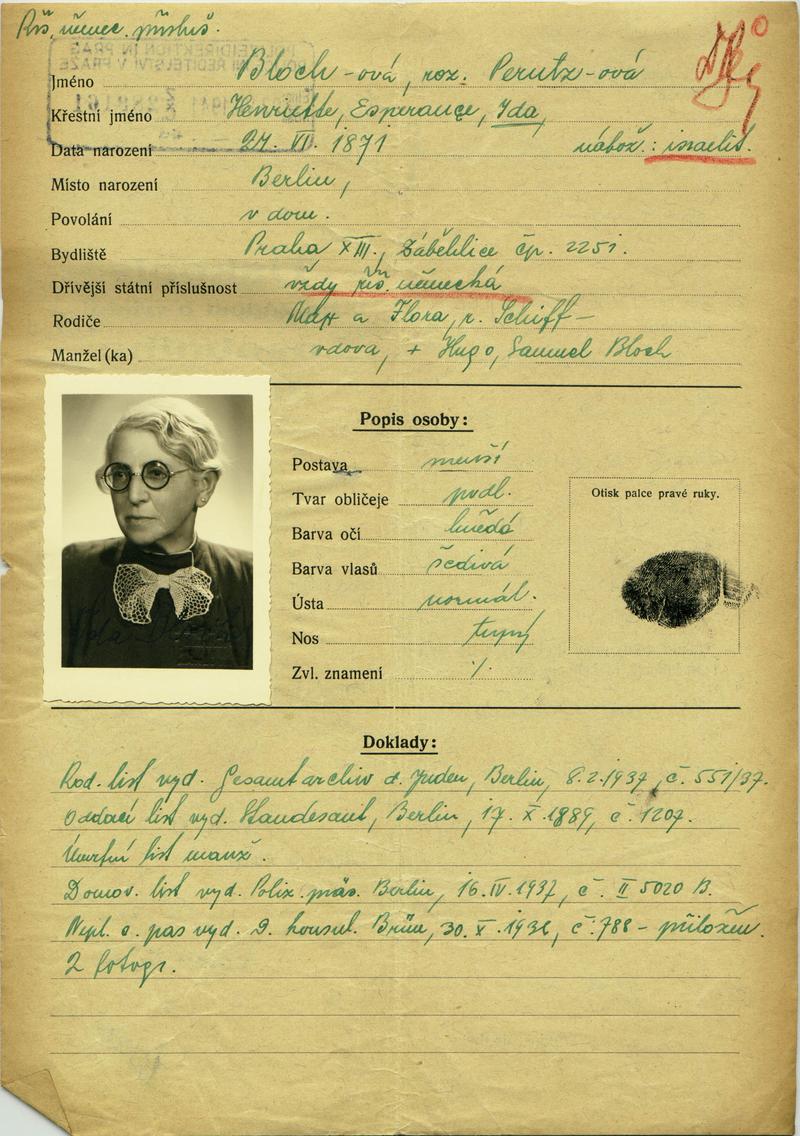 Říš. němec. přísluš.
Jméno Bloch-ová, roz. Perutz-ová
Křestní jméno Henriette, Esperance, Ida,
Data narození 27. VI. 1871 nábož.: israelit.
Místo narození Berlin,
Povolání v dom.
Bydliště Praha XIII., Záběhlice čp. 2251.
Dřívější státní příslušnost vždy říš. německá
Rodiče Max a Flora, r. Schiff-
Manžel(ka) vdova, + Hugo, Samuel Bloch
Popis osoby:
Postava menší
Tvar obličeje podl.
Barva očí hnědá
Barva vlasů šedivá
Ústa normál.
Nos tupý
Zvl. znamení ./.
Otisk palce pravé ruky.
Doklady:
Rod. list vyd. Gesamtarchiv d. Juden, Berlin, 8.2.1937, č. 551/37.
Oddací list vyd. Standesamt, Berlin, 17. X. 1889, č. 1207.
Úmrtní list manž.
Domov. list vyd. Poliz. präs. Berlin, 16. IV. 1937, č. II 5020 B.
Nepl. c. pas vyd. D. konsul. Brünn, 30. X. 1936, č. 788 - přiložen.
2 fotogr.